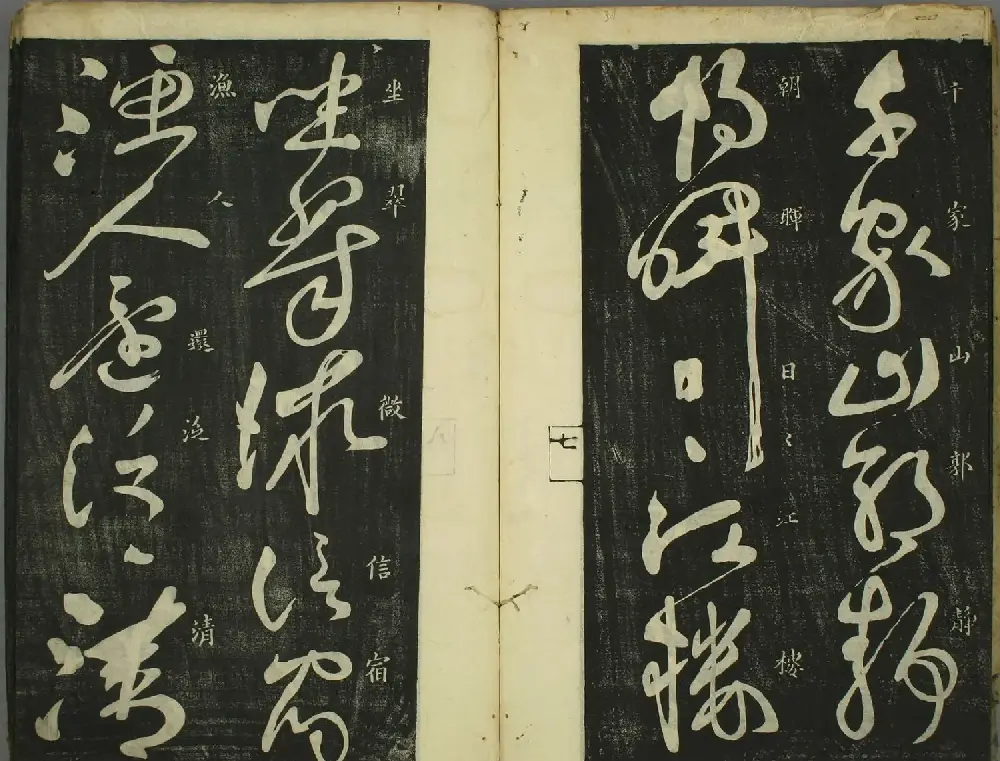 千家山郭静
千家山郭静
朝暉日〻江樓
朝暉日〻江楼
七
坐翠微信宿
坐翠微信宿
漁人還泛〻清
漁人還泛清